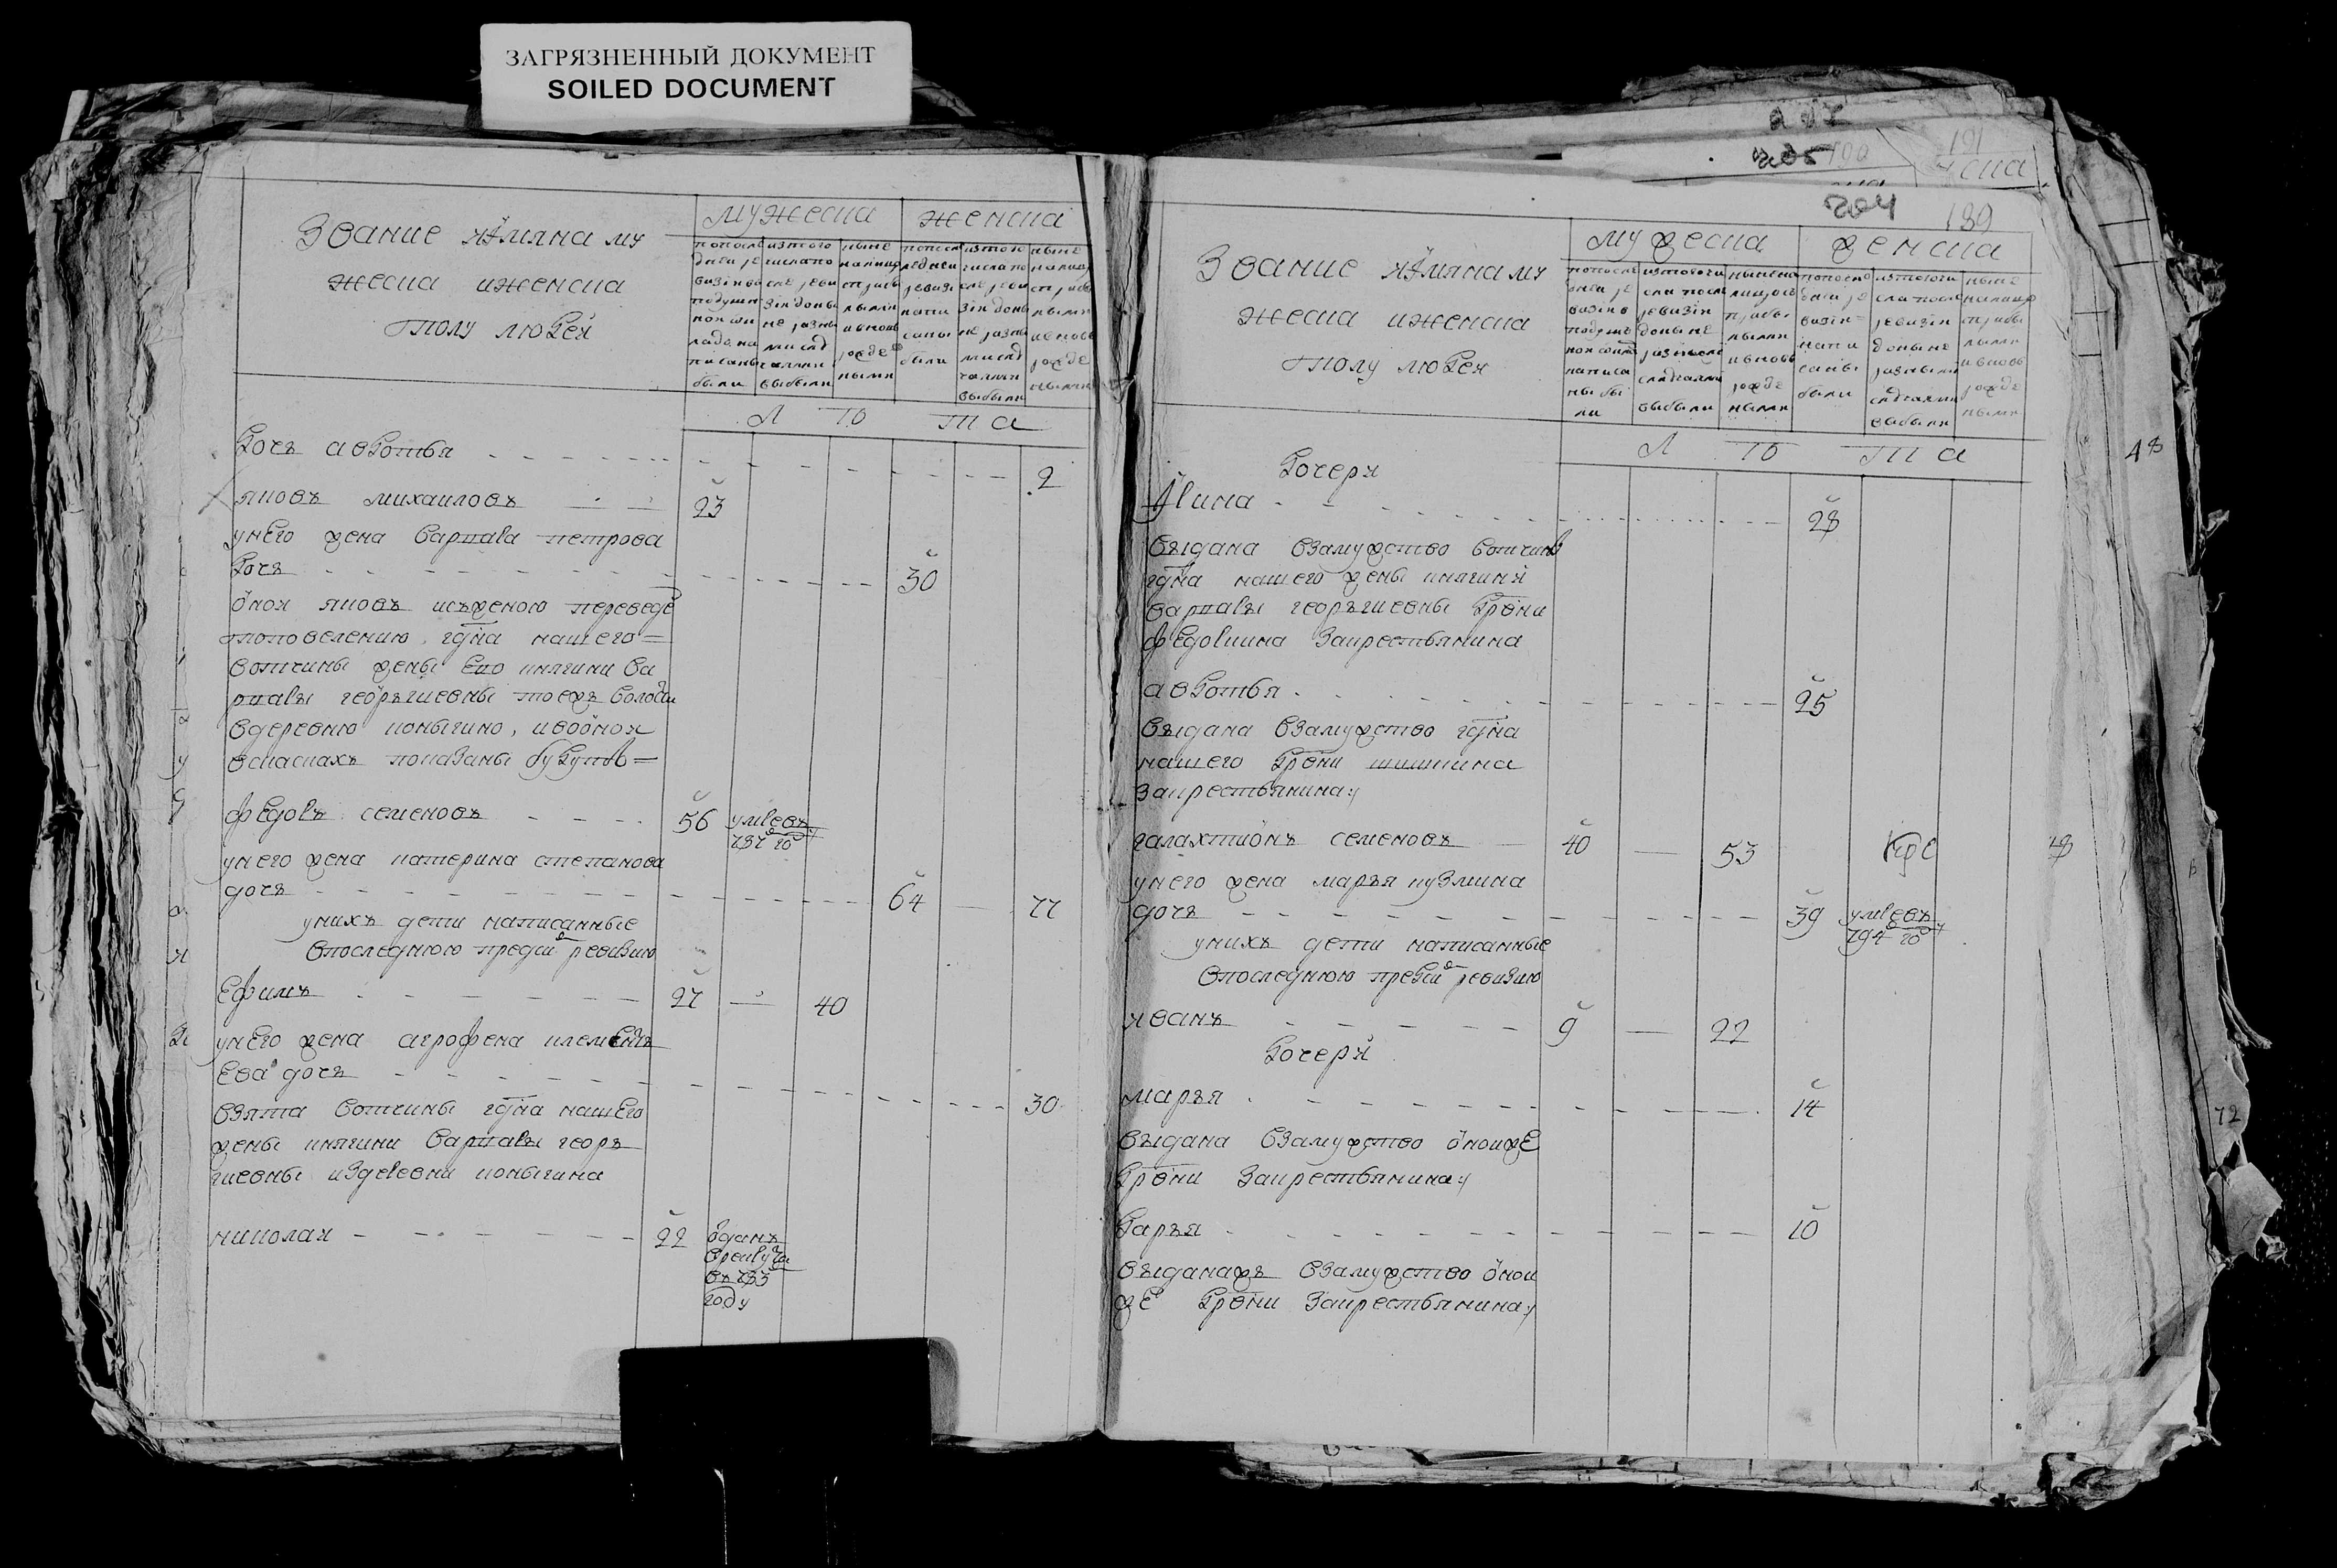 ЗАГРЯЗНЕННЫЙ ДОКУМЕНТ
SOILED DOCUMENT
Звание имяна му
жеска иженска
полу людей
мужеска
женска
попосле
дней ре
визіи в
подуш
ном ок
ладе на
писаны
были
изтого
числа по
сле реви
зіи доны
не разны
ми слу
чаями
выбыли
ныне
налицо
стрибы
лыми
ивновь
рожде
ными
попосле
дней
ревизі
напи
саны
были
изтого
числа по
сле реви
зіи доны
не разны
ми слу
чаями
выбыли
ныне
налиц
стрибы
лыми
ивновь
рожде
ными
Л Ѣ та
дочь авдотья 2
яковъ михаиловъ 23
унего жена варвара петрова
дочь 30
оной яковъ исженою переведе
поповелению гдна нашего
вотчины жены ево княгини ва
рвары георъгиевны тоежъ волости
вдеревню коныгино, ивооной
вспискахъ показаны будутъ
федоръ семеновъ 56 умревъ
787 го
унего жена катерина степанова
дочь 64 77
унихъ дети написанные
впоследнюю пред ревизию
Ефимъ 27 40
унего жена агрофена клементь
ева дочь 30
взята вотчины гдна нашего
жены княгини варвары георъ
гиевны издеревни коныгина
николай 22 отданъ
врекруты
въ 783
году
704
189
Звание имяна му
жеска иженска
полу людей
мужеска
женска
попосле
дней ре
визіи в
подуш
ном окла
написа
ны бы
ли
изтогочи
сла посл
ревизіи
доныне
разными
случаями
выбыли
нынена
лицо с
прибы
лыми
ивновь
рожде
ными
попосле
дней ре
визіи
напи
саны
были
изтогочи
сла после
ревизіи
доныне
разными
случаями
выбыли
ныне
налицо
стрибы
лыми
ивновь
рожде
ными
Л Ѣ та
дочери
Ирина 28
выдана взамужство вотчины
гдна нашего жены княгини
варвары георъгиевны дрвни
федоркина закрестьянина
авдотья 25
выдана взамужство гдна
нашего дрвни шишкина
закрестьянина
галахтионъ семеновъ 40 53
унего жена марья кузмина
дочь 39 умревъ
794 го
унихъ дети написанные
впоследнюю пред ревизию
иванъ 9 22
дочери
марья 14
выдана взамужство оноиже
дрвни закрестьянина
дарья 10
выданажъ взамужство оной
же дрвни закрестьянина
48
72